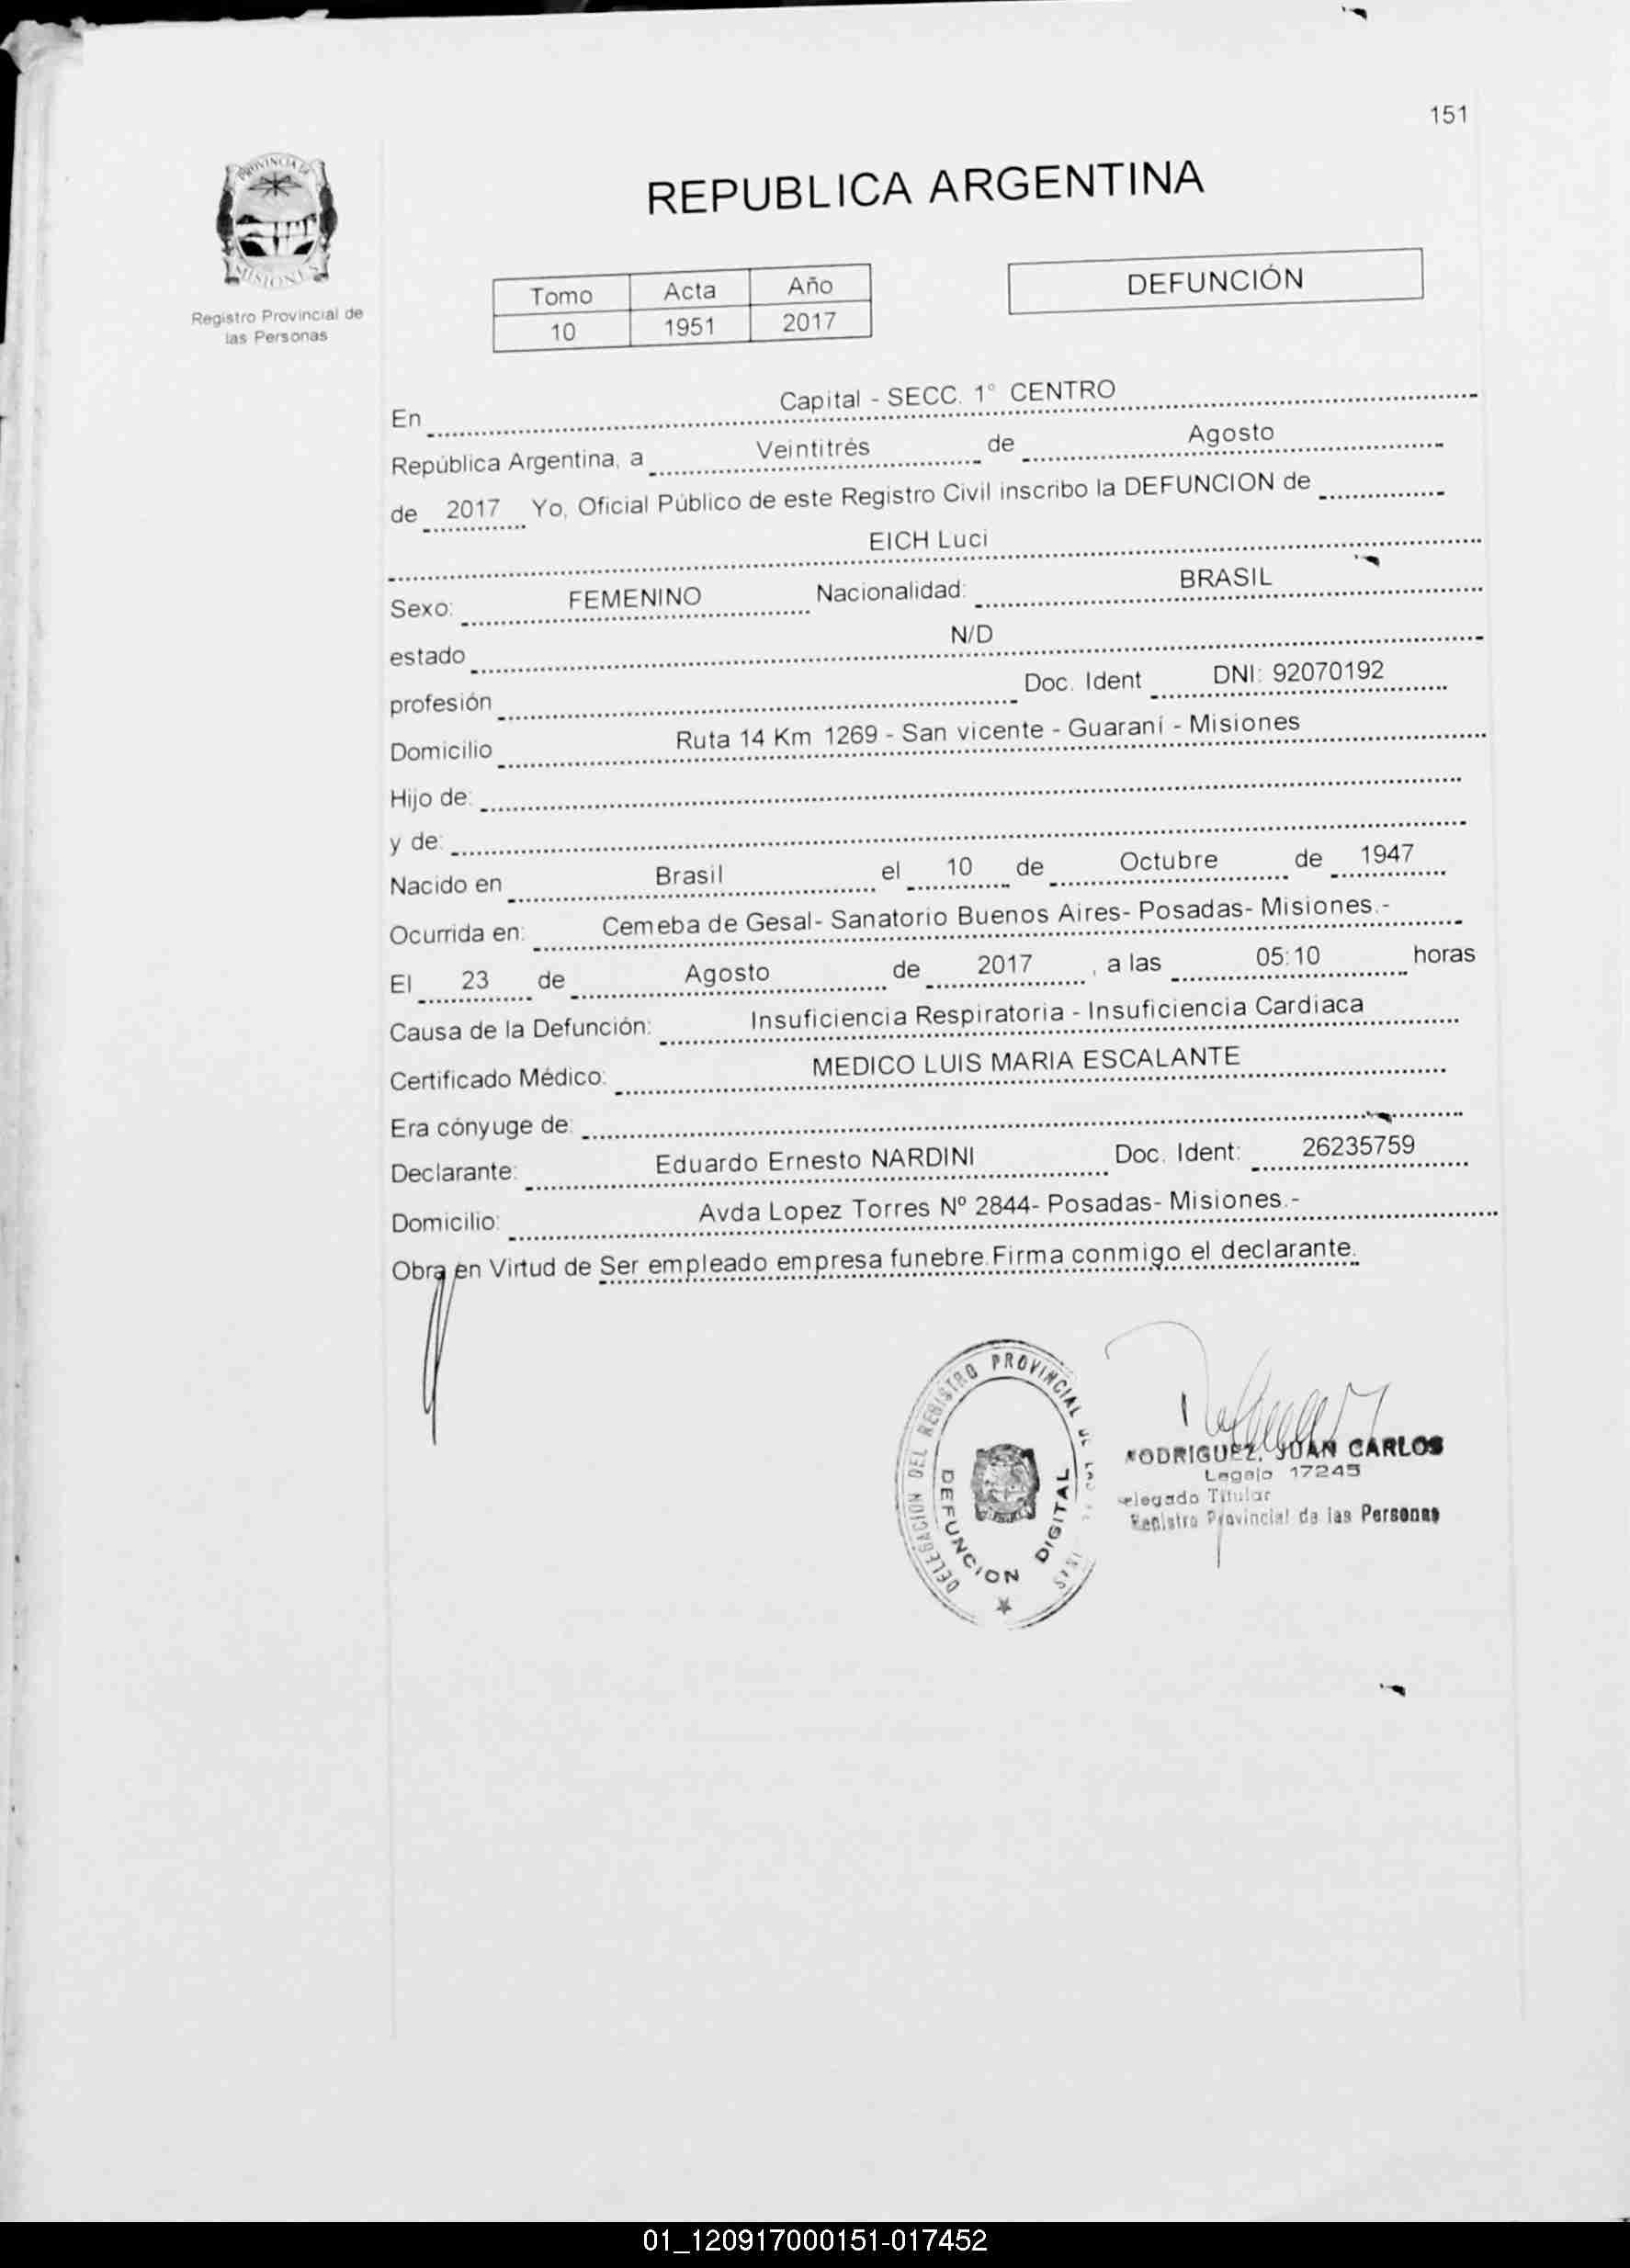 151
PROVINCIA DE
MISIONES
Registro Provincial de
las Personas
REPUBLICA ARGENTINA
Tomo Acta Año
10 1951 2017
DEFUNCIÓN
En Capital - SECC. 1° CENTRO
República Argentina, a Veintitrés de Agosto
de 2017 Yo, Oficial Público de este Registro Civil inscribo la DEFUNCION de
EICH Luci
Sexo: FEMENINO Nacionalidad: BRASIL
estado N/D
profesión Doc. Ident DNI: 92070192
Domicilio Ruta 14 Km 1269 - San vicente - Guaraní - Misiones
Hijo de:
y de:
Nacido en Brasil el 10 de Octubre de 1947
Ocurrida en: Cemeba de Gesal- Sanatorio Buenos Aires- Posadas- Misiones.-
El 23 de Agosto de 2017 , a las 05:10 horas
Causa de la Defunción: Insuficiencia Respiratoria - Insuficiencia Cardiaca
Certificado Médico: MEDICO LUIS MARIA ESCALANTE
Era cónyuge de:
Declarante: Eduardo Ernesto NARDINI Doc. Ident: 26235759
Domicilio: Avda Lopez Torres Nº 2844- Posadas- Misiones.-
Obra en Virtud de Ser empleado empresa funebre.Firma conmigo el declarante.
DELEGACION DEL REGISTRO PROVINCIAL
DEFUNCION DIGITAL
RODRIGUEZ, JUAN CARLOS
Legajo 17245
Delegado Titular
Registro Provincial de las Personas
01_120917000151-017452